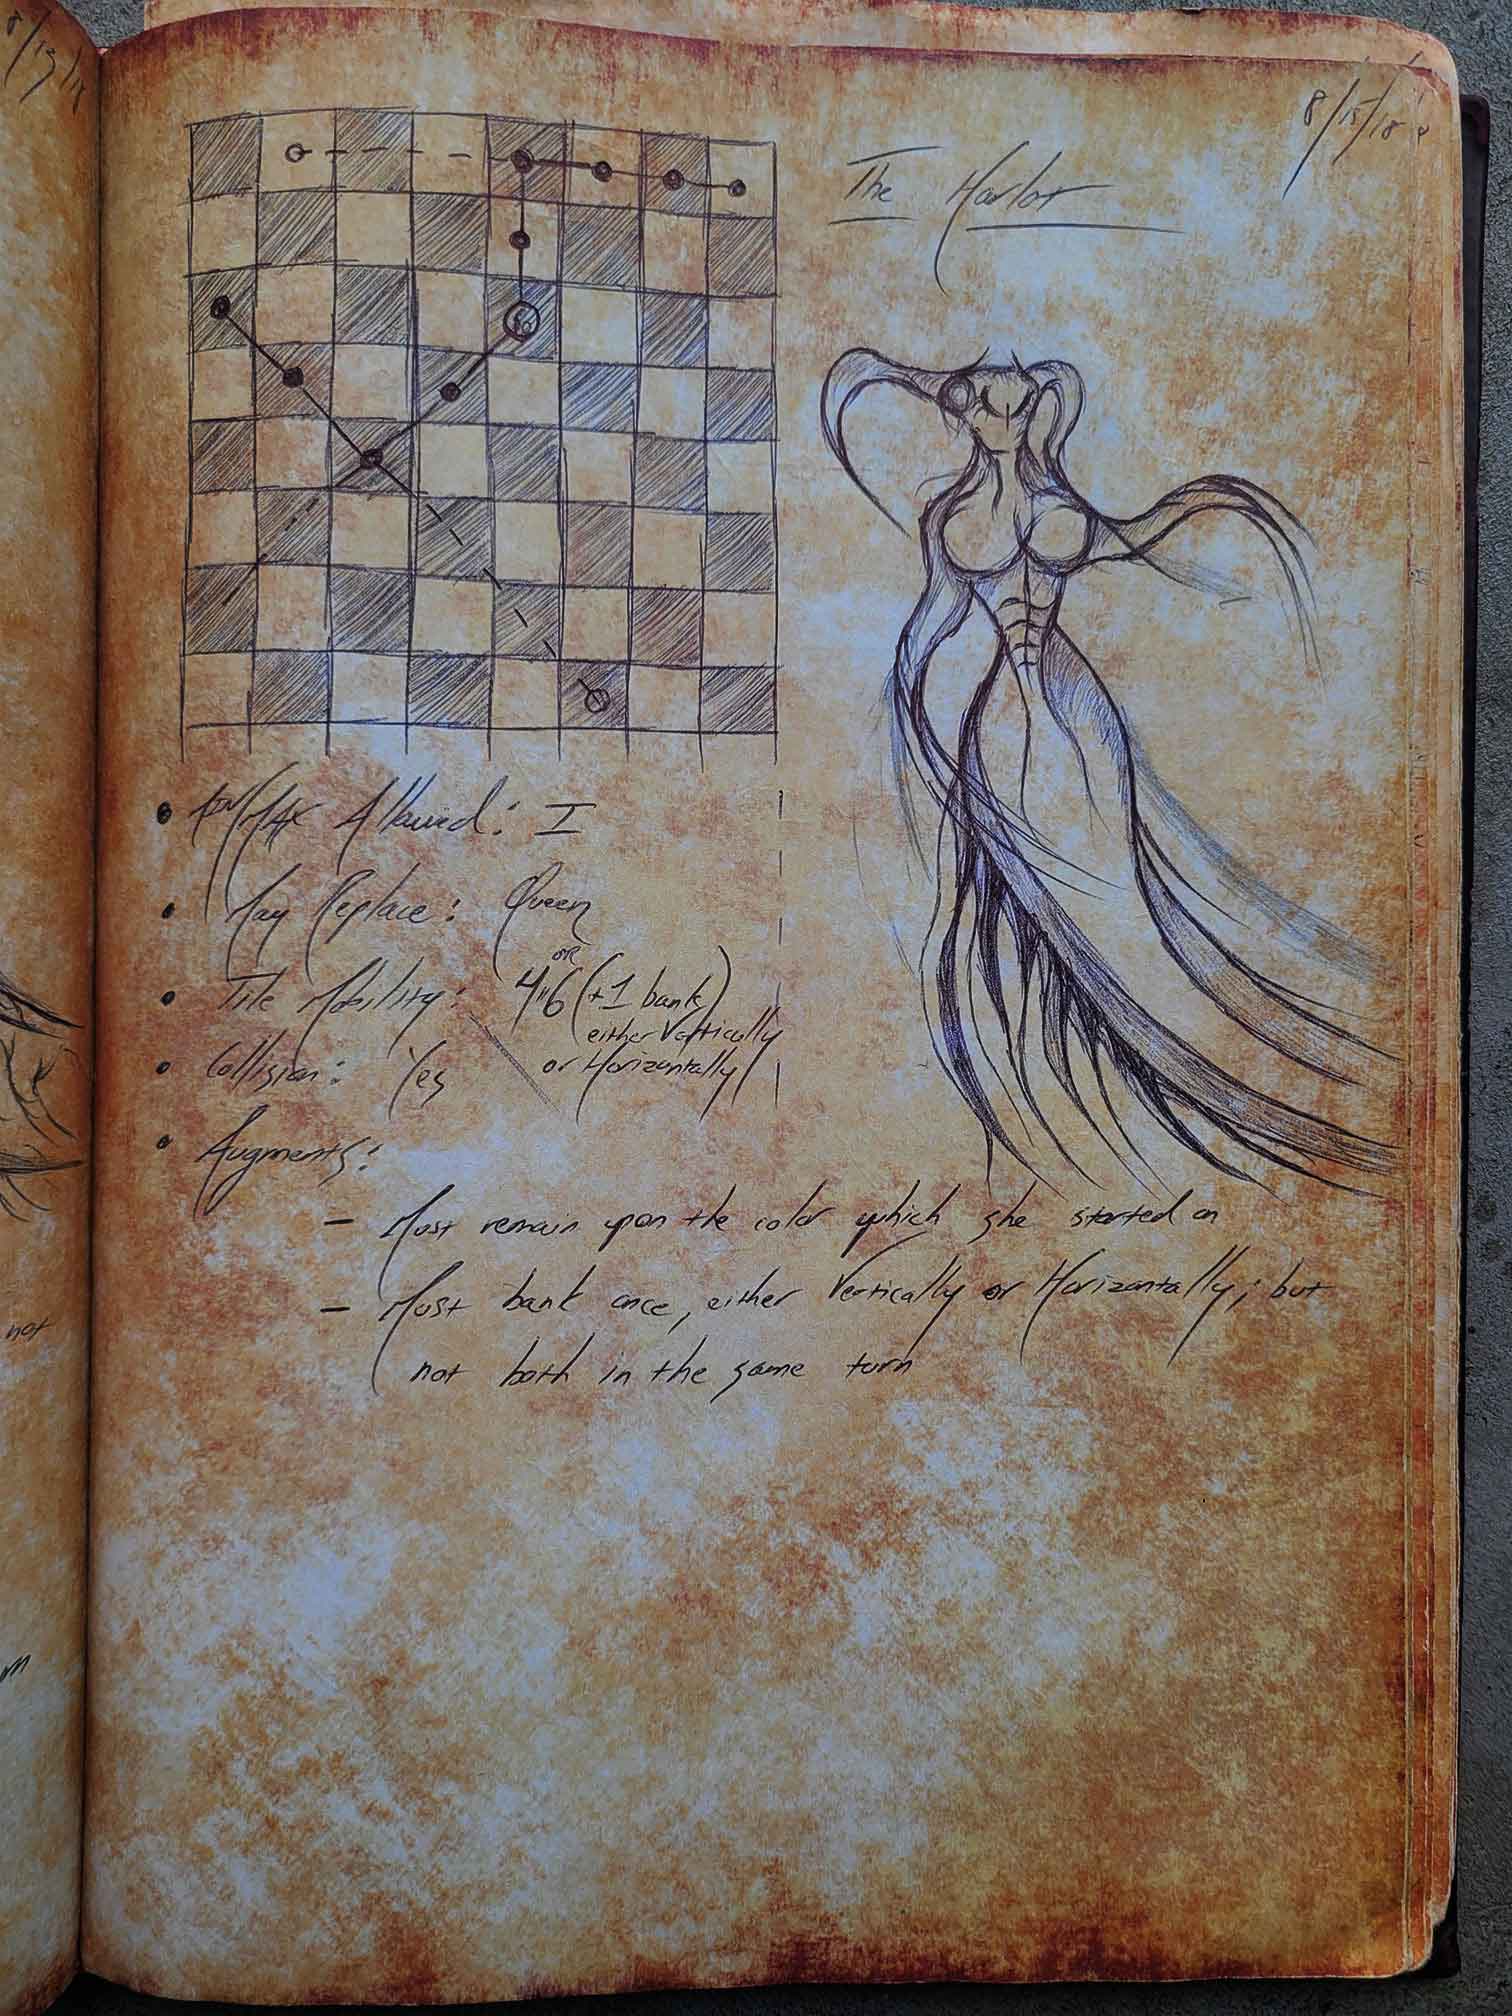 8/13/18
8/15/18
The Harlot
Allowed: I
May Replace: Queen
or
Tile Mobility: 4"6 (+1 bank)
either Vertically
Collision: Yes
or Horizontally
Augments:
- Must remain upon the color which she started on
- Must bank once, either Vertically or Horizontally; but
not both in the same turn
not